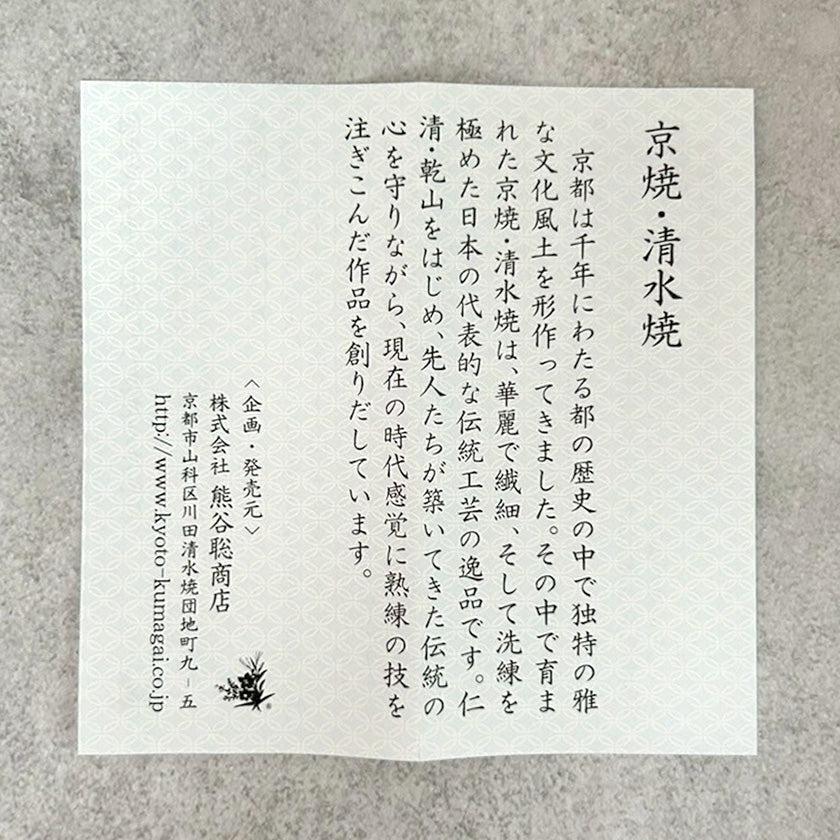 京焼・清水焼
京都は千年にわたる都の歴史の中で独特の雅
な文化風土を形作ってきました。その中で育ま
れた京焼・清水焼は、華麗で繊細、そして洗練を
極めた日本の代表的な伝統工芸の逸品です。仁
清・乾山をはじめ、先人たちが築いてきた伝統の
心を守りながら、現在の時代感覚に熟練の技を
注ぎこんだ作品を創りだしています。
〈企画・発売元〉
株式会社 熊谷聡商店
京都市山科区川田清水焼団地町九-五
http://www.kyoto-kumagai.co.jp
®